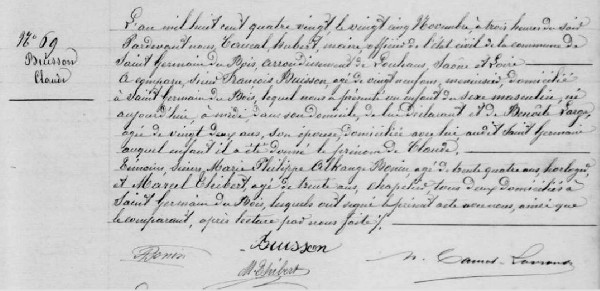 N° 69
Buisson
Claude
L'an mil huit cent quatre vingt, le vingt cinq Novembre, à trois heures du soir
Pardevant nous, Hubert, maire, officier de l'état civil de la commune de
Saint Germain du Bois, arrondissement de Louhans, Saône et Loire
A comparu, Sieur François Buisson, agé de vingt neuf ans, menuisier, domicilié
à Saint Germain du Bois, lequel nous a présenté un enfant du sexe masculin, né
aujourd'hui à midi, dans son domicile, de lui déclarant et de Benoîte Farge,
agée de vingt deux ans, son épouse, domiciliée avec lui audit Saint Germain
auquel enfant il a été donné le prénom de Claude.
Témoins, Sieurs Marie Philippe Bonin agé de trente quatre ans, horloger,
et Marcel Thibert, agé de trente ans, chapelier, tous deux domiciliés à
Saint Germain du Bois, lesquels ont signé le présent acte avec nous, ainsi que
le comparant, après lecture par nous faite.
Bonin
Buisson
M. Thibert